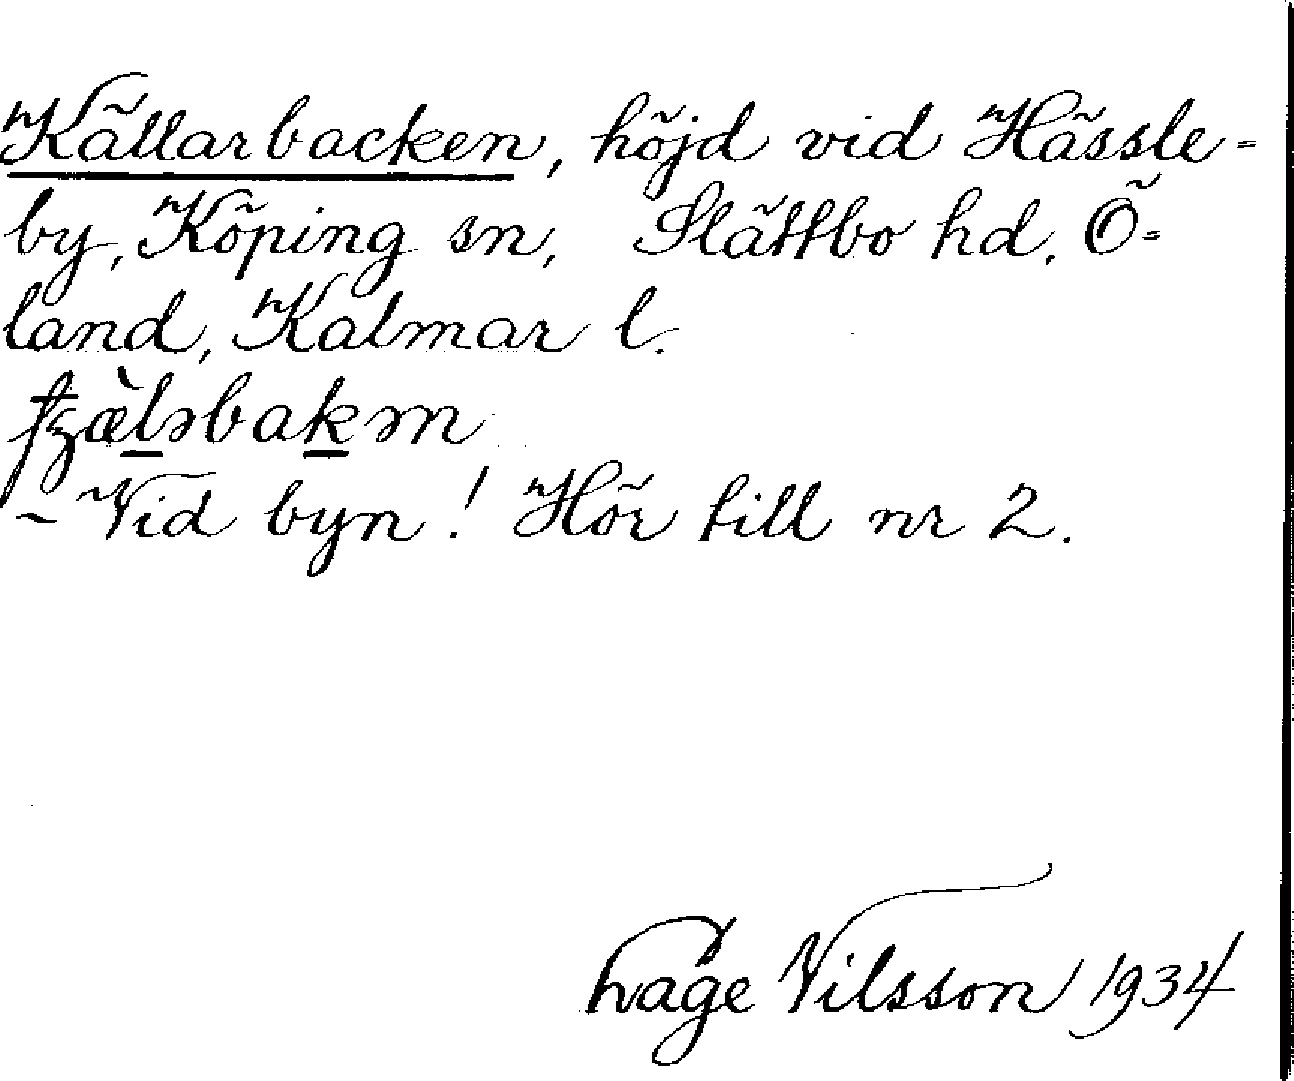 Källarbacken, höjd vid Hässle-
by, Köping sn, Slättbo hd. Ö-
land, Kalmar l.
- Vid byn! Hör till nr 2.
Nilsson 1934